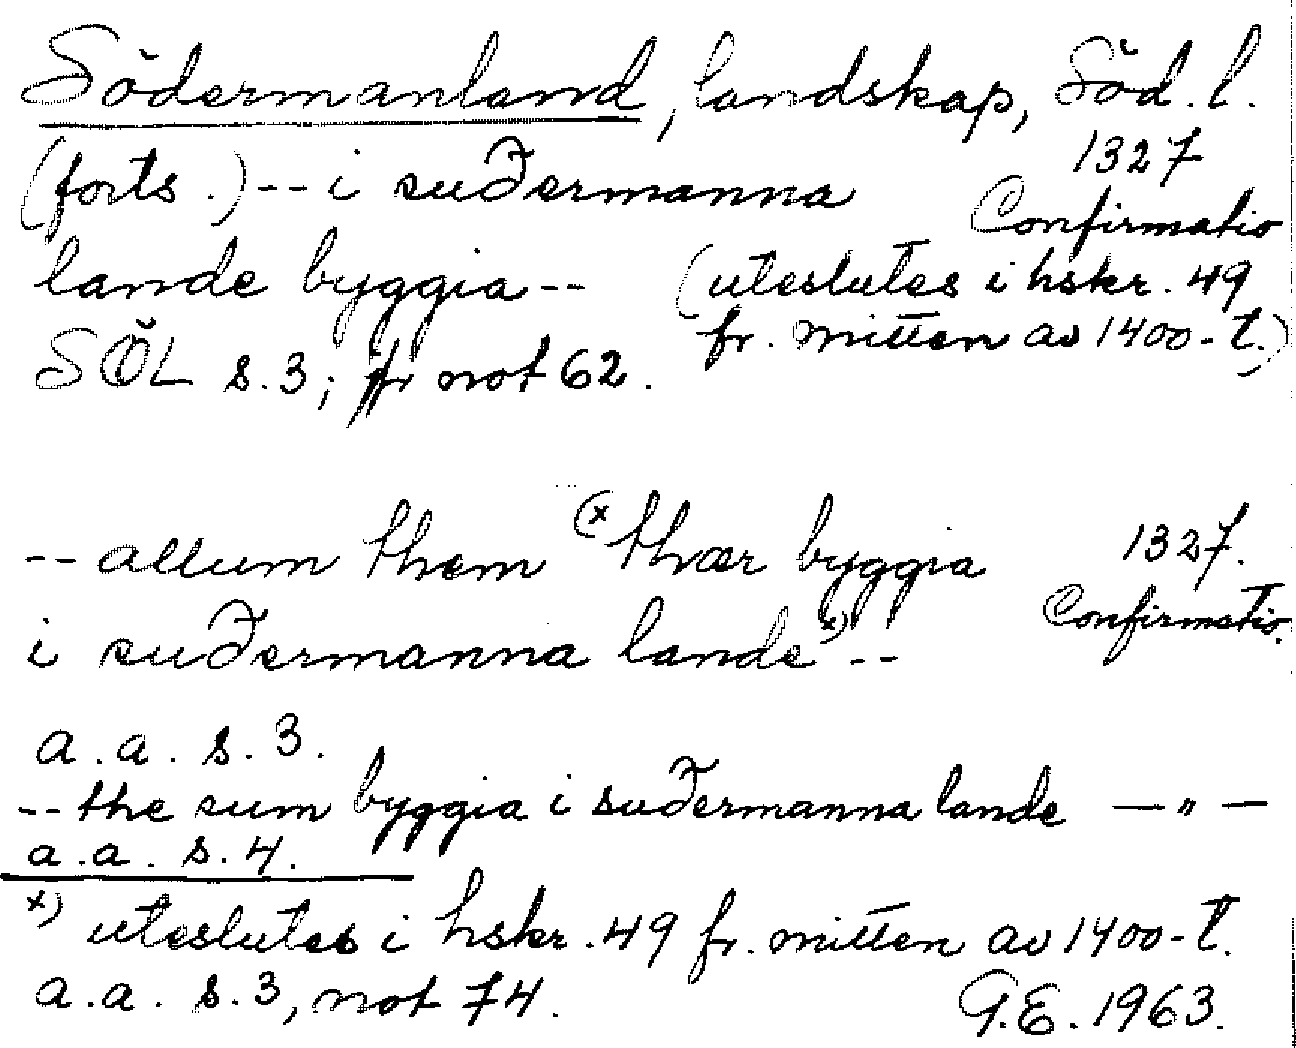 Södermanland, landskap, Söd. l.
(forts.) -- i suðermanna
1327
Confirmatio
lande byggia --
(uteslutes i hskr. 49
fr. mitten av 1400-t.)
SÖL s. 3; not 62.
-- allum them (x thær byggia
1327.
i suðermanna lande x) --
Confirmatio.
a.a. s. 3.
-- the sum byggia i suðermanna lande — " —
a.a. s. 4.
x) uteslutes i hskr. 49 fr. mitten av 1400-t.
a.a. s. 3, not 74.
G.E. 1963.